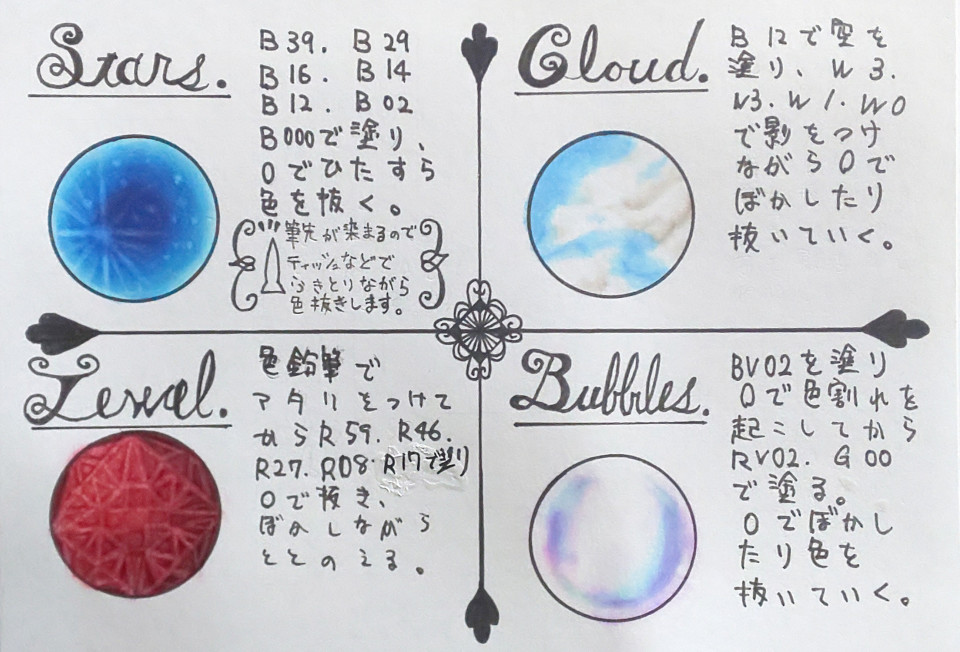 Stars.
B39. B29
B16. B14
B12. B02
B000で塗り、
0でひたすら
色を抜く。
筆先が染まるので
ティッシュなどで
ふきとりながら
色抜きします。
Cloud.
B12で空を
塗り、W3.
N3.W1.W0
で影をつけ
ながら0で
ぼかしたり
抜いていく。
Jewel.
色鉛筆で
アタリをつけて
からR59.R46.
R27.R08.R17で塗り
0で抜き、
ぼかしながら
ととのえる。
Bubbles.
BV02を塗り
0で色割れを
起こしてから
RV02.G00
で塗る。
0でぼかし
たり色を
抜いていく。